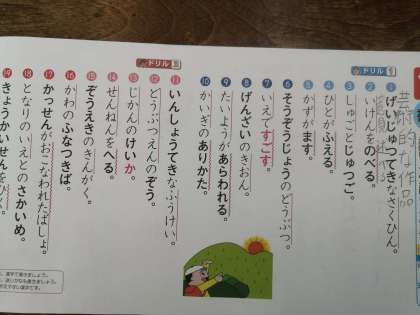 ドリル 1
1 げいじゅつてきなさくひん。
芸術的な作品
2 いけんをのべる。
3 しゅごとじゅつご。
4 ひとがふえる。
5 かずがます。
6 そうぞうじょうのどうぶつ。
7 いえですごす。
8 げんざいのきおん。
9 たいようがあらわれる。
10 かいぎのありかた。
ドリル
11 いんしょうてきなふうけい。
12 どうぶつえんのぞう。
13 じかんのけいか。
14 せんねんをへる。
15 ぞうえきのきんがく。
16 かわのふなつきば。
17 かっせんがおこなわれたばしょ。
18 となりのいえとのさかいめ。
19 きょうかいせんをひく。